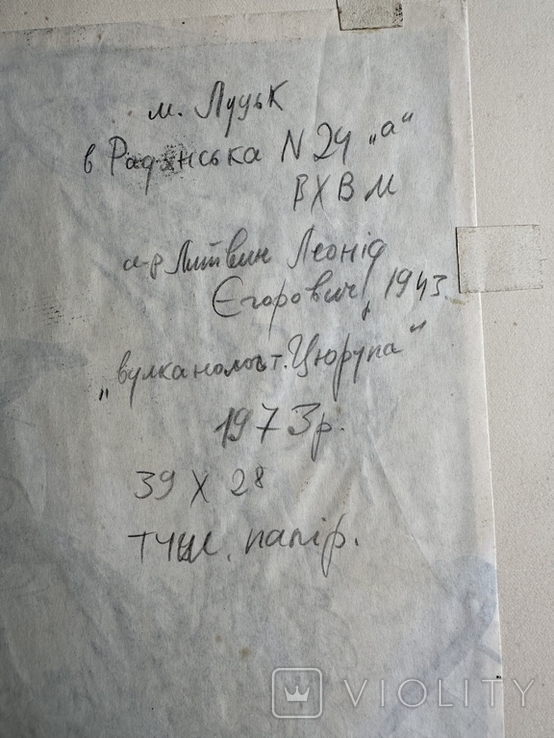 м. Луцьк
в Радянська N 24 „а“
ВХВМ
а-р Литвин Леонід
Єгорович, 1943
„вулканолог т. Цюрупа“
1973р.
39 X 28
туш, папір.
VIOLITY